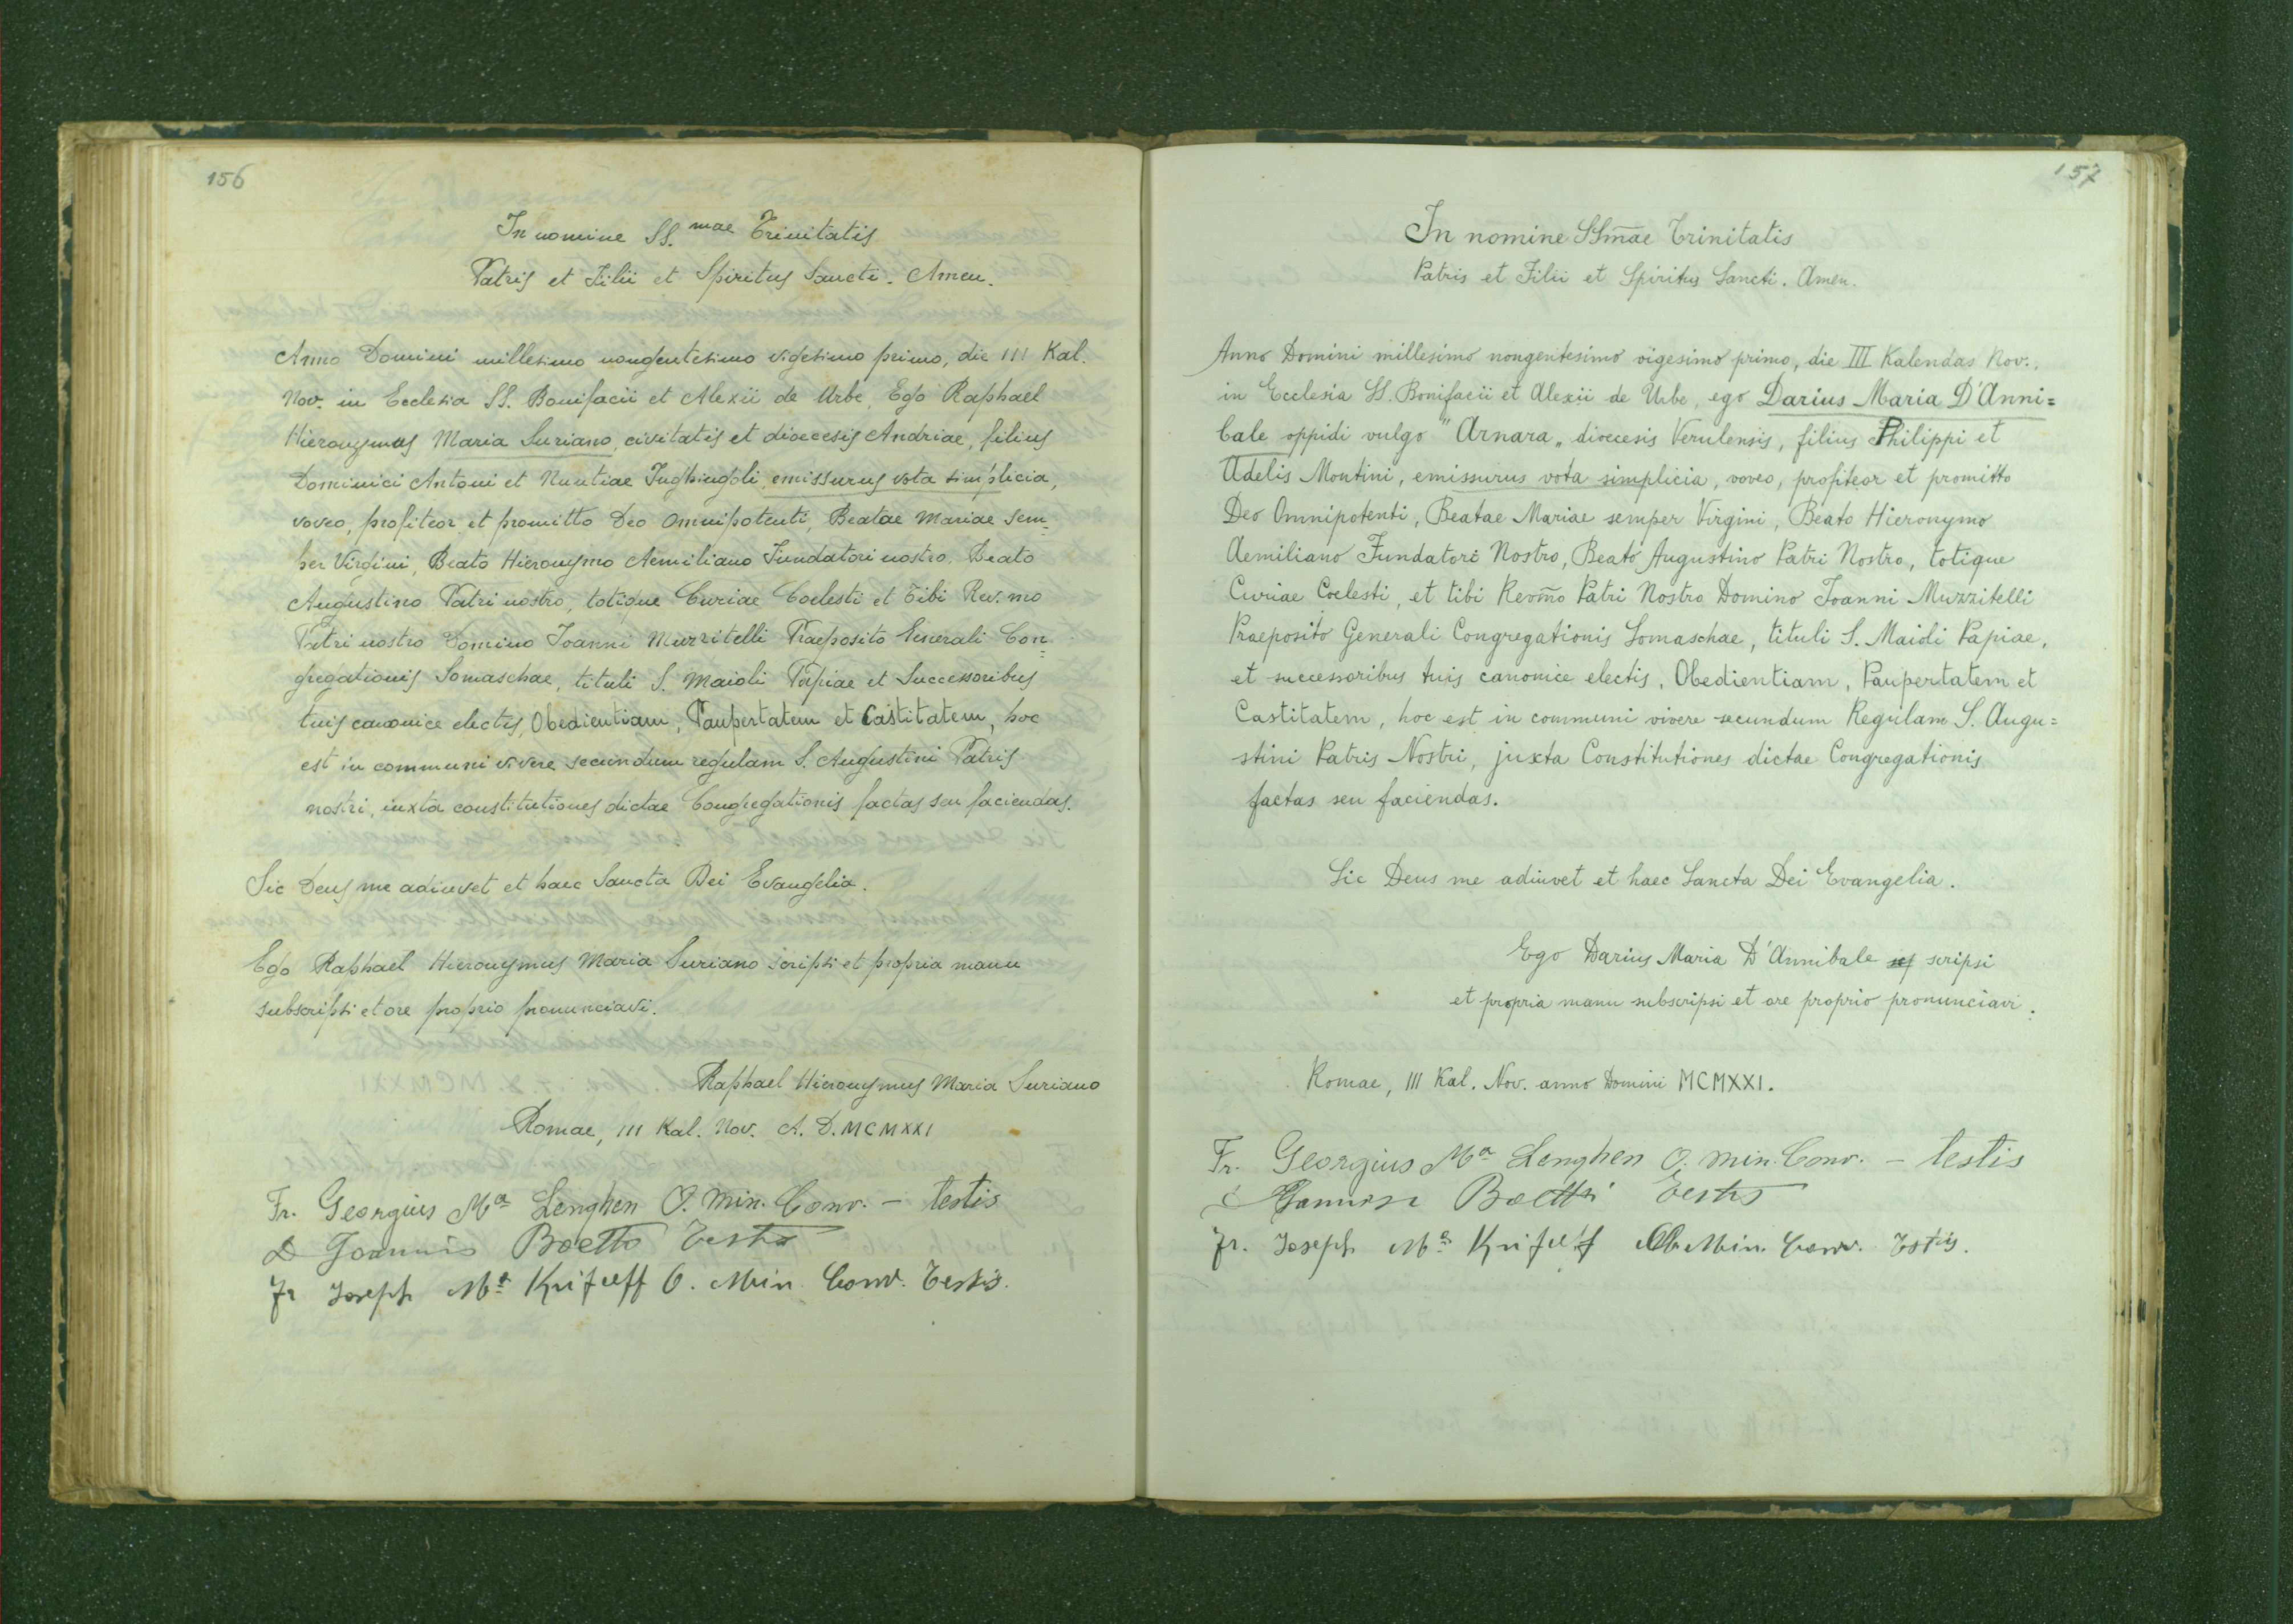 156
In nomine SS.mae Trinitatis
Patris et Filii et Spiritus Sancti. Amen.
Anno Domini millesimo nongentesimo vigesimo primo, die III Kal.
Nov. in Ecclesia SS. Bonifacii et Alexii de Urbe, Ego Raphael
Hieronymus Maria Suriano, civitatis et dioecesis Andriae, filius
Dominici Antoni et Nuntiae Inghingoli, emissurus vota simplicia,
voveo, profiteor et promitto Deo Omnipotenti, Beatae Mariae Sem=
per Virgini, Beato Hieronymo Aemiliano Fundatori nostro, Beato
Augustino Patri nostro, totique Curiae Coelesti et Tibi Rev.mo
Patri nostro Domino Joanni Muzzitelli Praeposito Generali Con=
gregationis Somaschae, tituli S. Maioli Papiae et Successoribus
tuis canonice electis, Obedientiam, Paupertatem et Castitatem, hoc
est in communi vivere secundum regulam S. Augustini Patris
nostri, iuxta constitutiones dictae Congregationis factas seu faciendas.
Sic Deus me adiuvet et haec Sancta Dei Evangelia.
Ego Raphael Hieronymus Maria Suriano scripsi et propria manu
subscripsi et ore proprio pronunciavi.
Raphael Hieronymus Maria Suriano
Romae, III Kal. Nov. A. D. MCMXXI
Fr. Georgius Ma Lenghen O. Min. Conv. - testis
D Joannis Boetto Testis
Fr Joseph Ma O. Min. Conv. Testis.
157
In nomine SSm̄ae Trinitatis
Patris et Filii et Spiritus Sancti. Amen.
Anno Domini millesimo nongentesimo vigesimo primo, die III Kalendas Nov.,
in Ecclesia SS. Bonifacii et Alexii de Urbe, ego Darius Maria D'Anni=
bale oppidi vulgo "Arnara„ dioecesis Verulensis, filius Philippi et
Adelis Montini, emissurus vota simplicia, voveo, profiteor et promitto
Deo Omnipotenti, Beatae Mariae semper Virgini, Beato Hieronymo
Aemiliano Fundatori Nostro, Beato Augustino Patri Nostro, totique
Curiae Coelesti, et tibi Revm̄o Patri Nostro Domino Joanni Muzzitelli
Praeposito Generali Congregationis Somaschae, tituli S. Maioli Papiae,
et successoribus tuis canonice electis, Obedientiam, Paupertatem et
Castitatem, hoc est in communi vivere secundum Regulam S. Augu=
stini Patris Nostri, juxta Constitutiones dictae Congregationis
factas seu faciendas.
Sic Deus me adiuvet et haec Sancta Dei Evangelia.
Ego Darius Maria D'Annibale scripsi
et propria manu subscripsi et ore proprio pronunciavi.
Romae, III Kal. Nov. anno Domini MCMXXI.
Fr. Georgius Ma Lenghen O. Min. Conv. - testis
Boetto Testis
Fr. Joseph Ma Min. Conv. Testis.